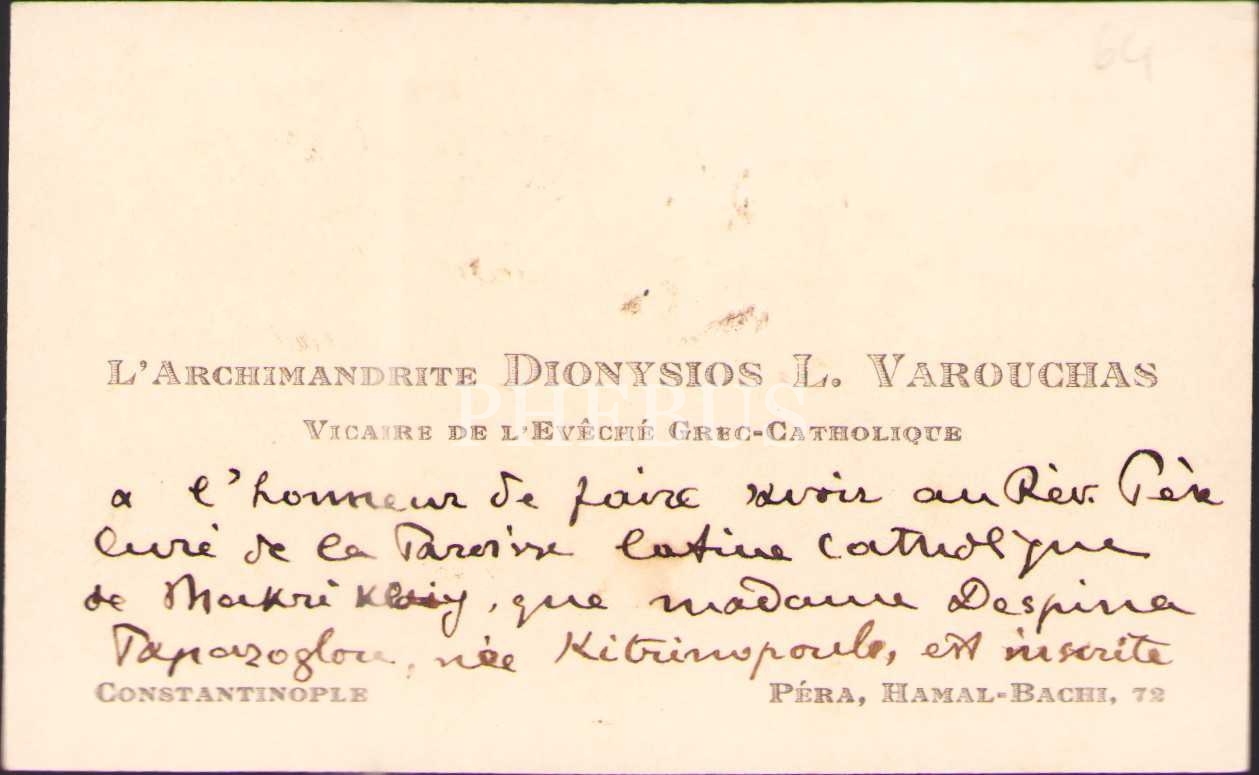 64
L'Archimandrite Dionysios L. Varouchas
PHEBUS
Vicaire de l'Evêché Grec-Catholique
a l'honneur de faire savoir au Rév. Père
Curé de la Paroisse latine catholique
de Makri, que madame Despina
née Kitrinopoulo, est inscrite
Constantinople
Péra, Hamal-Bachi, 72